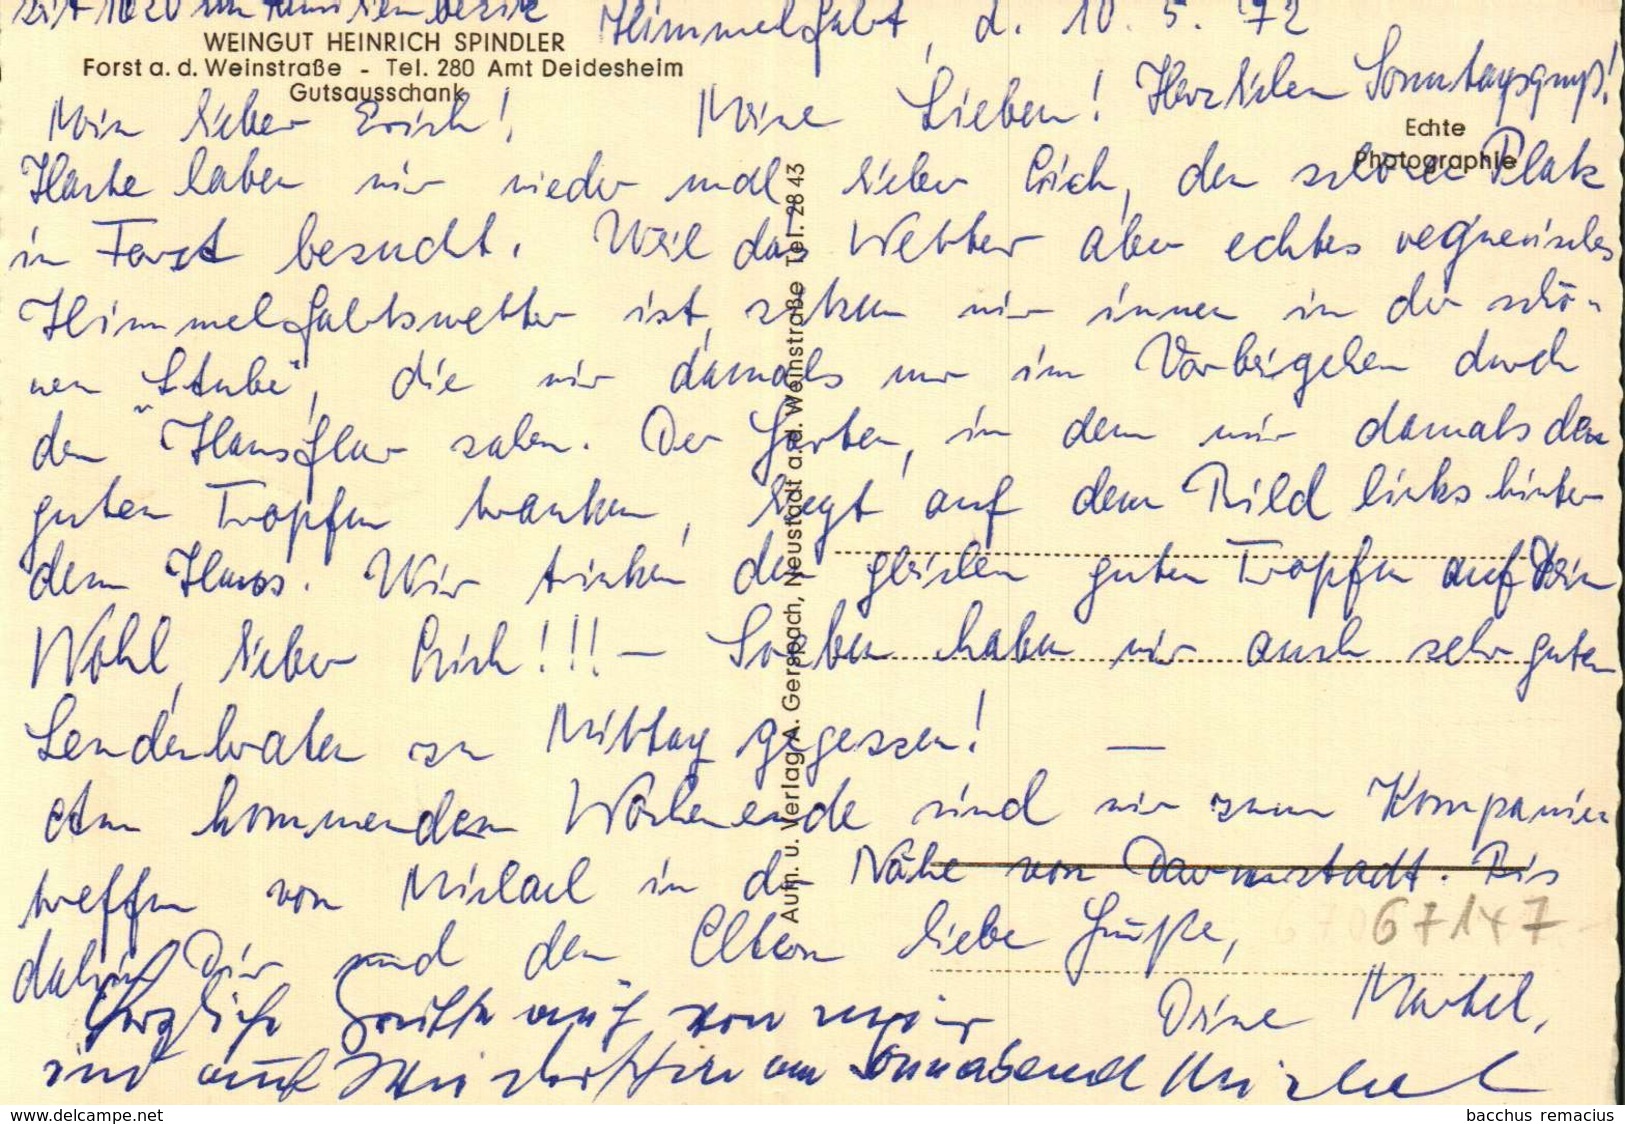 Himmelfahrt, d. 10. 5. 72
WEINGUT HEINRICH SPINDLER
Forst a. d. Weinstraße - Tel. 280 Amt Deidesheim
Gutsausschank
Mein lieber Erich! Meine Lieben! Herzlichen Sonntagsgruß!
Echte
Photographie
Heute haben wir wieder mal, lieber Erich, den schönen Platz
in Forst besucht. Weil das Wetter aber echtes regnerisches
Himmelfahrtswetter ist, sitzen wir innen in der schö-
nen "Stube", die wir damals nur im Vorbeigehen durch
den Hausflur sahen. Der Garten, in dem wir damals den
guten Tropfen tranken, liegt auf dem Bild links hinter
dem Haus. Wir trinken den gleichen guten Tropfen auf Dein
Wohl, lieber Erich!!! — Soeben haben wir auch sehr guten
Lendenbraten zu Mittag gegessen! —
Am kommenden Wochenende sind wir zum Kompanie
treffen von Michael in der Nähe von Darmstadt. Bis
dahin Dir und den Eltern liebe Grüße,
67147
Deine Martel.
Herzliche Grüße auch von mir
und auf am Sonnabend Michael
Aufn. u. Verlag A. Gerspach, Neustadt a. d. Weinstraße Tel. 28 43
zis-clo.com
bacchus remacius